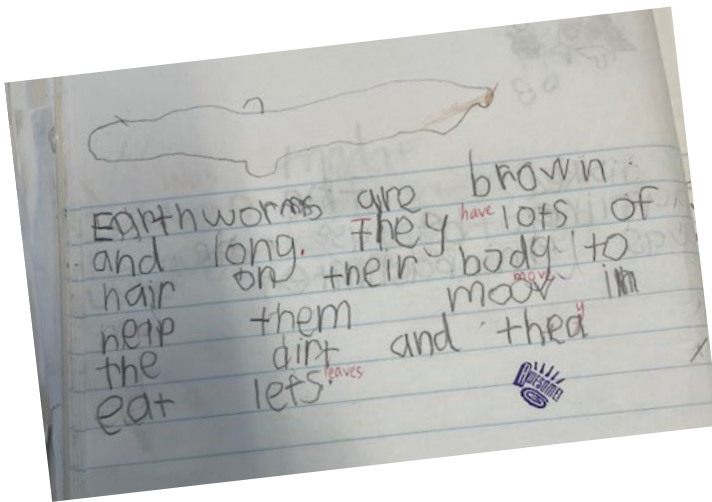 Earthworms are brown
and long. They have lots of
hair on their body to
help them moov move in
the dirt and thea y
eat lefs. leaves
Awesome!